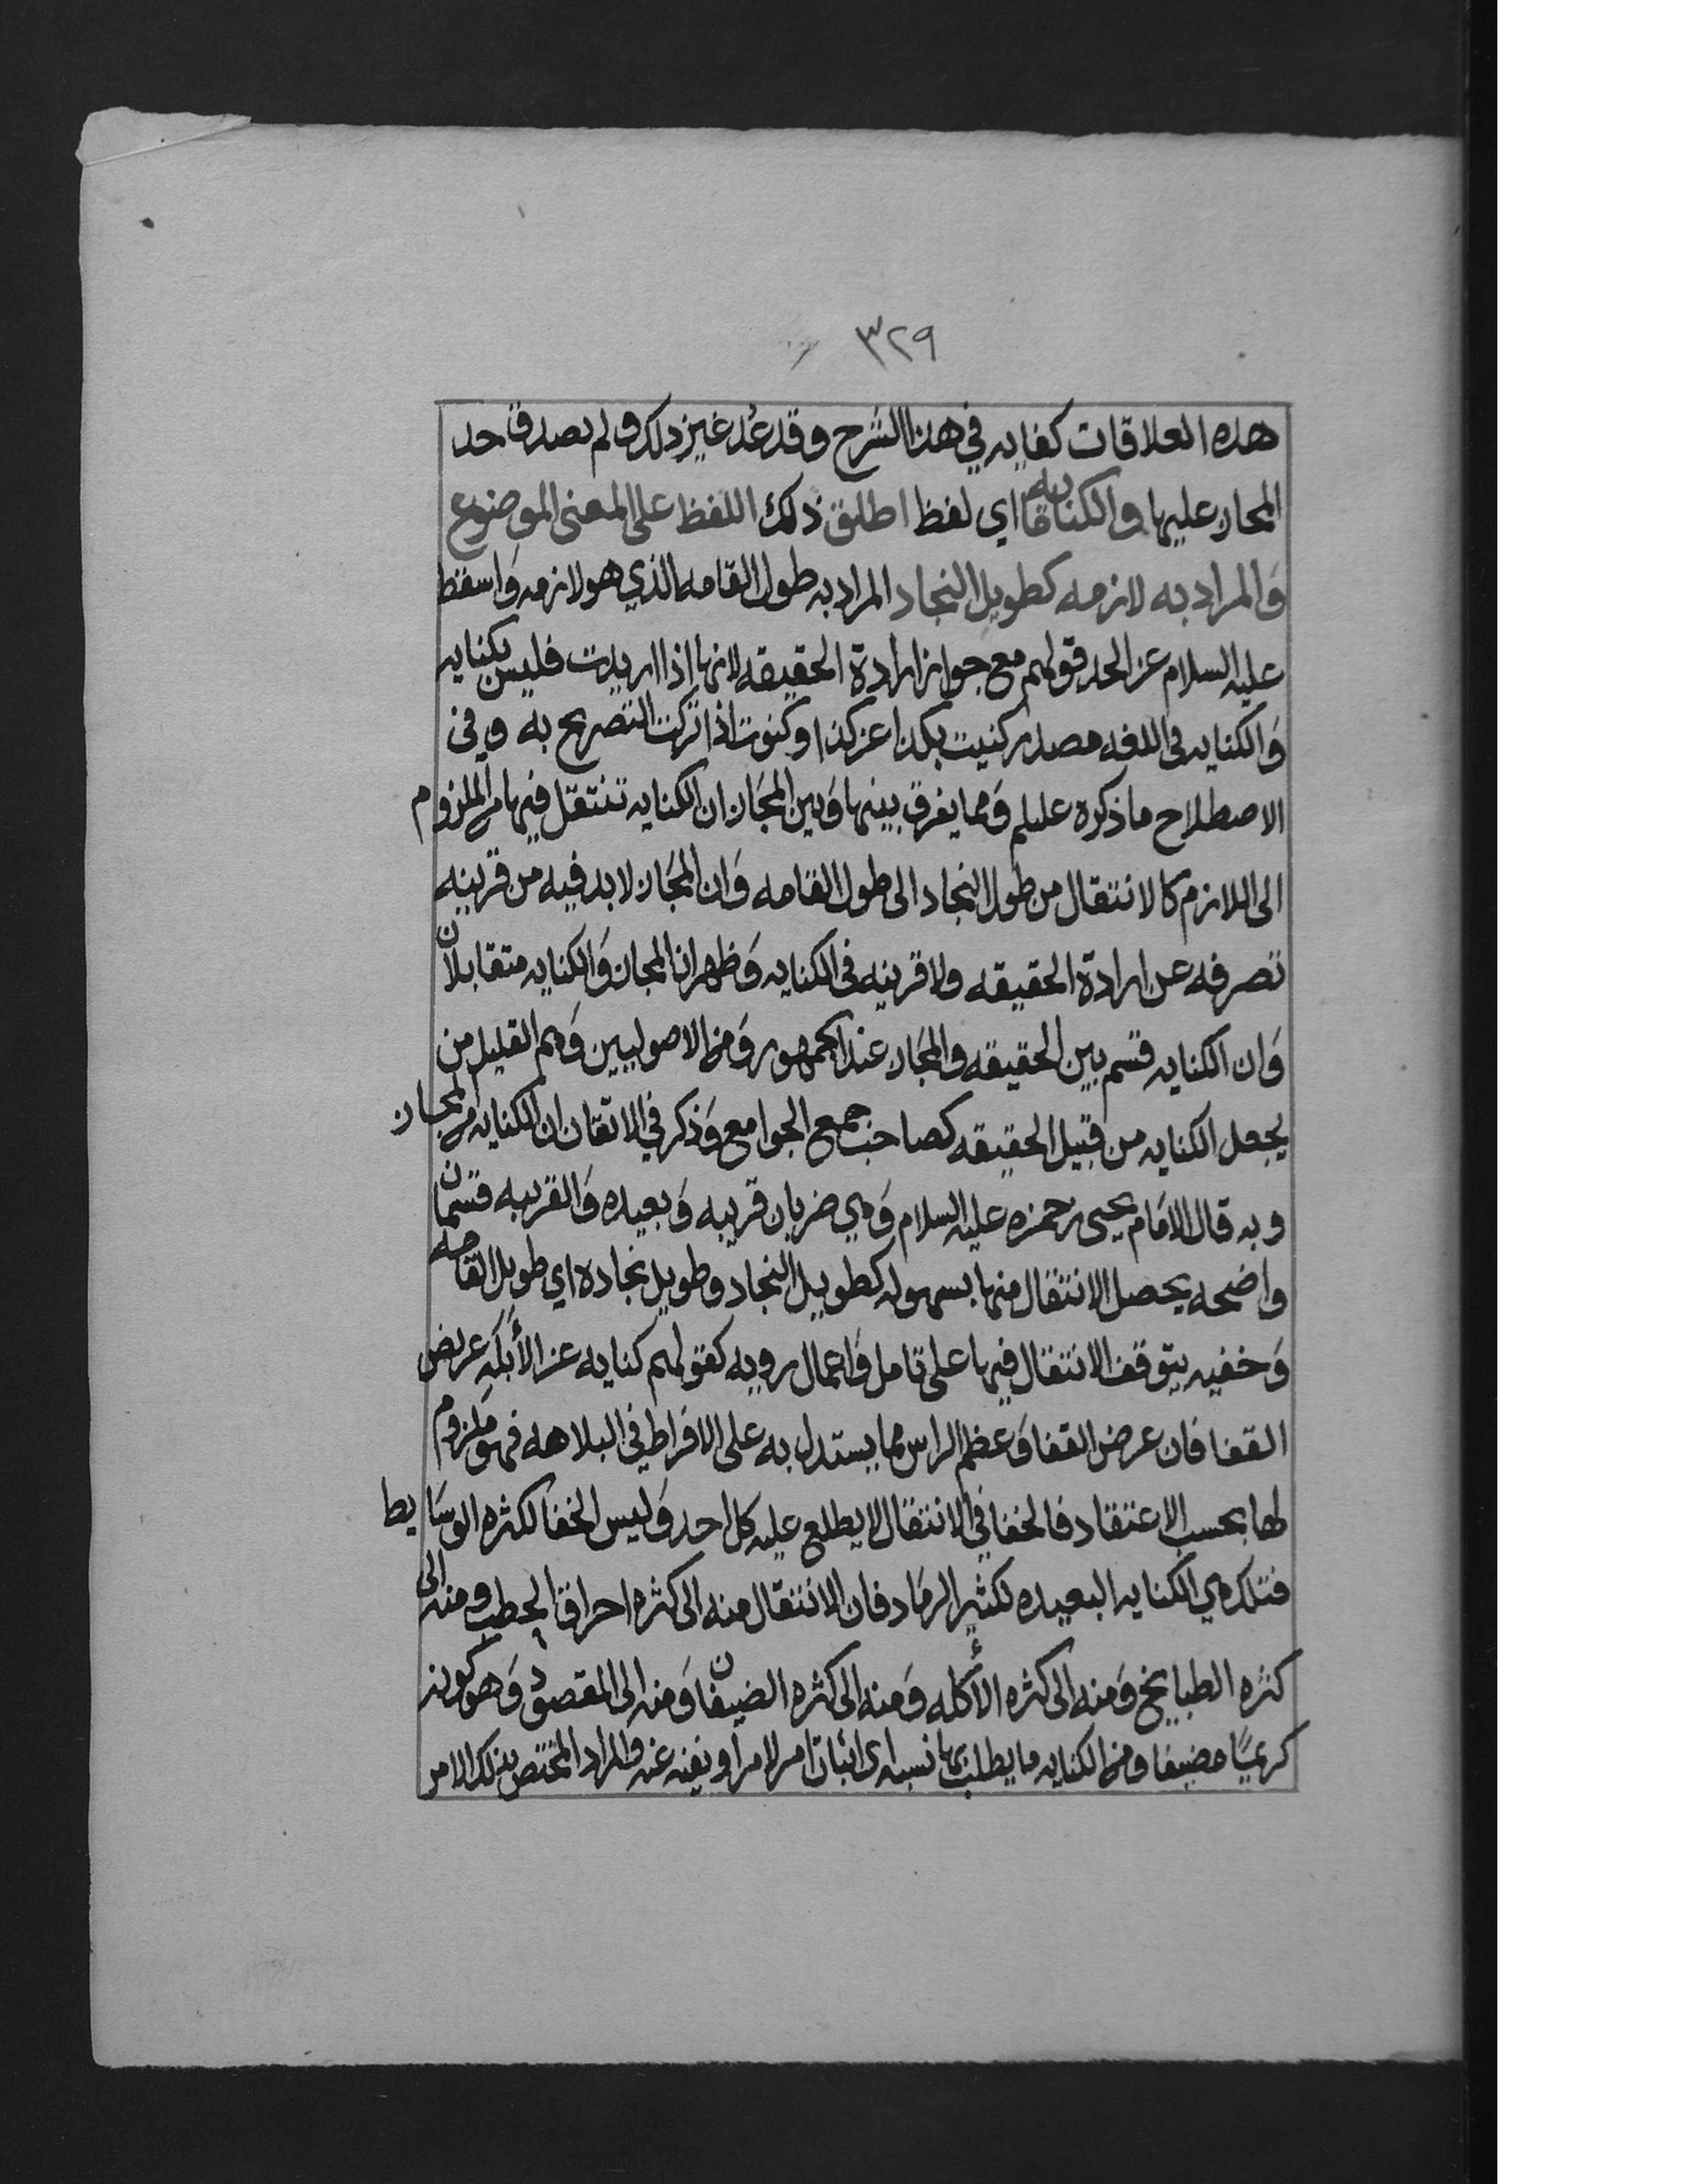 ٣٢٩
هذه العلاقات كفايه في هذا الشرح وقد عُد غير ذلك ولم يصدق حد
المجاز عليها والكنايه ما اي لفظ اطلق ذلك اللفظ على المعنى الموضوع
وَالمراد به لازمه كطويل النجاد المراد به طول القامه الذي هو لازمه وَاسقط
عليه السلام عن الحد قولهم مع جواز ارادة الحقيقه لانها اذا اريدت فليس بكنايه
وَالكنايه في اللغه مصدر كنيت بكذا عن كذا وكنوت اذا تركت التصريح به وفي
الاصطلاح ما ذكره عليلم وَمما يفرق بينها وَبين المجَاز ان الكنايه تنتقل فيها من الملزوم
الى اللازم كالانتقال من طول النجاد الى طول القامه وَان المجَاز لا بد فيه من قرينه
تصرفه عن ارادة الحقيقه ولا قرينه في الكنايه وَظهر ان المجاز وَالكنايه متقابلان
وَان الكنايه قسم بين الحقيقه والمجَاز عند الجمهور وَمن الاصوليين وَهم القليل من
يجعل الكنايه من قبيل الحقيقه كصاحب جمع الجوامع وَذكر في الاتقان ان الكنايه من المجاز
وبه قال الامَام يحيى بن حمزه عليه السلام وَهي ضربان قريبه وَبعيده وَالقريبه قسمان
واضحه يحصل الانتقال منها بسهوله كطويل النجاد وطويل نجاده اي طويل القامه
وَخفيه يتوقف الانتقال فيها على تامل وَاعمال رويه كقولهم كنايه عن الأَبْلَهِ عريض
القفا فان عرض القفا وَعظم الراس مما يستدل به على الافراط في البلاهه فهو مَلزوم
لها بحسب الاعتقاد فالخفا في الانتقال لا يطلع عليه كل احد وَليس الخفا لكثره الوسَايط
فتلك هي الكنايه البعيده لكثير الرمَاد فان الانتقال منه الى كثره احراق الحطب ومنه الى
كثره الطبايخ وَمنه الى كثره الأكله وَمنه الى كثره الضيفان وَمنه الى المقصود وَهو كونه
كريمًا مضيفا ومن الكنايه ما يطلب بها نسبه اى اثبات امر لامر او نفيه عنه والمراد المختص بذلك الامر